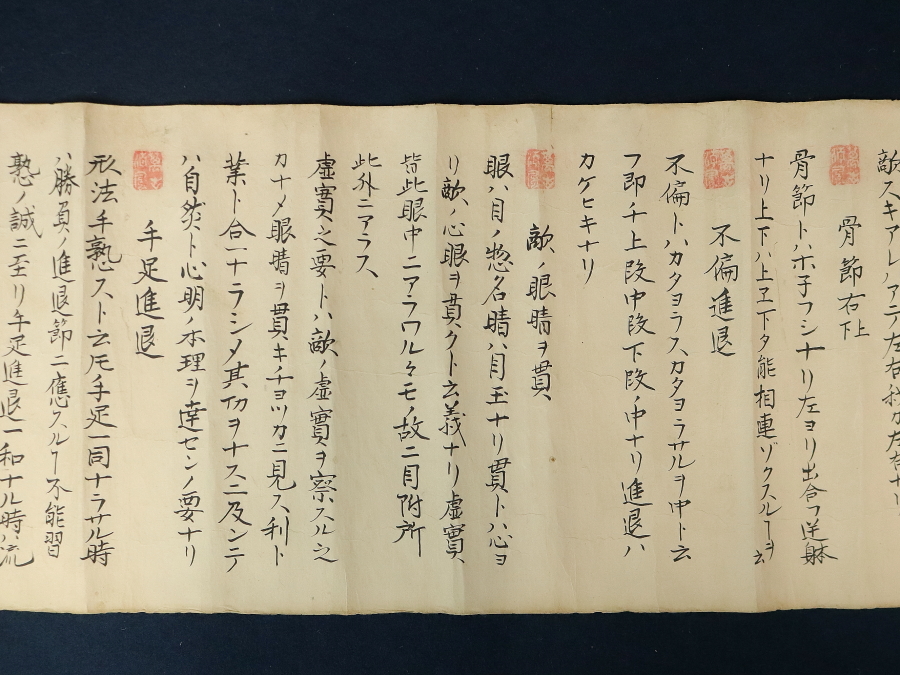 敵スキアレハアテ左右我カ左右ナリ
骨節右上下
骨節トハホ子フシナリ左ヨリ出合フ逆躰
ナリ上下ハ上ヱ下タ能相連ゾクスルヿヲ云
不偏進退
不偏トハカタヨラスカタヨラサルヲ中ト云
フ即チ上段中段下段ノ中ナリ進退ハ
カケヒキナリ
敵ノ眼晴ヲ貫
眼ハ目ノ惣名晴ハ目玉ナリ貫トハ心ヨ
リ敵ノ心眼ヲ貫クト云義ナリ虚實
皆此眼中ニアラワルヽモノ故ニ目附所
此外ニアラス
虚實之要トハ敵ノ虚實ヲ察スル之
カナメ眼晴ヲ貫キチヨツカニ見ス利ト
業ト合一ナラシメ其切ヲナスニ及ンテ
ハ自炎ト心明ノ本理ヲ達センノ要ナリ
手足進退
形法手熟スト云𪜈手足一同ナラサル時
ハ勝負ノ進退節ニ應スルヿ不能習
熟ノ誠ニ至リ手足進退一和ナル時ハ流